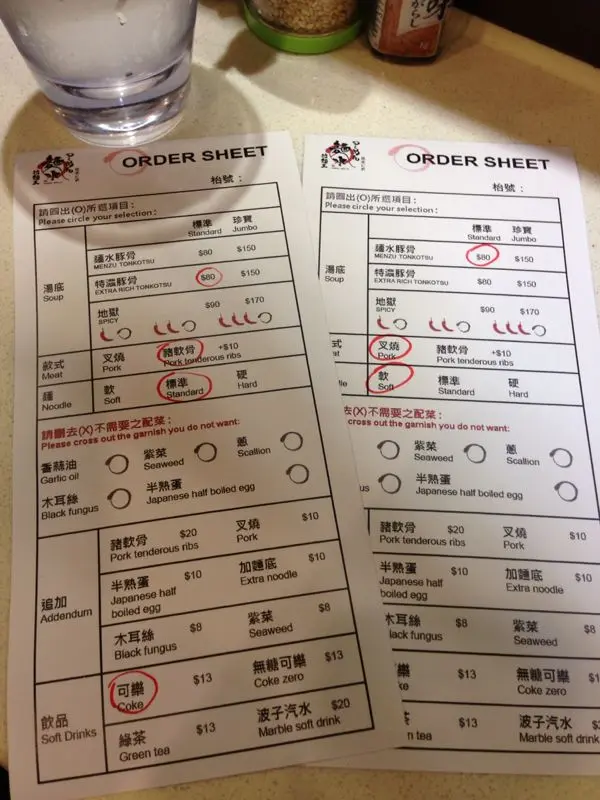 ORDER SHEET
枱號：
請圓出(O)所選項目：
Please circle your selection :
標準 珍寶
Standard Jumbo
湯底
Soup
麵水豚骨 $80 $150
MENZU TONKOTSU
特濃豚骨 $80 $150
EXTRA RICH TONKOTSU
地獄 $90 $170
SPICY
款式
Meat
叉燒 豬軟骨 +$10
Pork Pork tenderous ribs
麵
Noodle
軟 標準 硬
Soft Standard Hard
請刪去(X)不需要之配菜：
Please cross out the garnish you do not want:
香蒜油 紫菜 蔥
Garlic oil Seaweed Scallion
木耳絲 半熟蛋
Black fungus Japanese half boiled egg
追加
Addendum
豬軟骨 $20 叉燒 $10
Pork tenderous ribs Pork
半熟蛋 $10 加麵底 $10
Japanese half Extra noodle
boiled egg
木耳絲 $8 紫菜 $8
Black fungus Seaweed
飲品
Soft Drinks
可樂 $13 無糖可樂 $13
Coke Coke zero
綠茶 $13 波子汽水 $20
Green tea Marble soft drink
ORDER SHEET
枱號：
請圓出(O)所選項目：
Please circle your selection :
標準 珍寶
Standard Jumbo
湯底
Soup
麵水豚骨 $80 $150
MENZU TONKOTSU
特濃豚骨 $80 $150
EXTRA RICH TONKOTSU
地獄 $90 $170
SPICY
式
Meat
叉燒 豬軟骨 +$10
Pork Pork tenderous ribs
軟 標準 硬
Soft Standard Hard
(X)不需要之配菜：
cross out the garnish you do not want:
紫菜 蔥
Seaweed Scallion
半熟蛋
Japanese half boiled egg
豬軟骨 $20 叉燒 $10
Pork tenderous ribs Pork
半熟蛋 $10 加麵底 $10
Japanese half Extra noodle
boiled egg
木耳絲 $8 紫菜 $8
Black fungus Seaweed
樂 $13 無糖可樂 $13
Coke zero
$13 波子汽水
n tea Marble soft drink